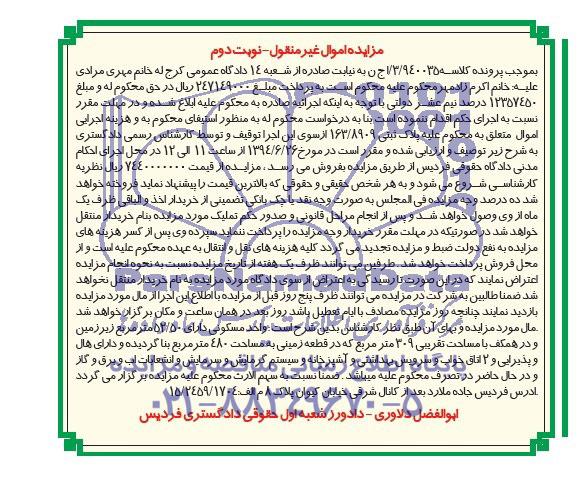 مزایده اموال غیر منقول-نوبت دوم
بموجب پرونده کلاسه ۳/۹۴۰۰۳۵/اج ن به نیابت صادره از شعبه ۱۴ دادگاه عمومی کرج له خانم مهری مرادی
علیه: خانم اکرم زادمیر محکوم علیه محکوم است به پرداخت مبلغ ۲۴۷۱۴۹۰۰۰ ریال در حق محکوم له و مبلغ
۱۲۳۵۷۴۵۰ درصد نیم عشر دولتی با توجه به اینکه اجرائیه صادره به محکوم علیه ابلاغ شده و در مهلت مقرر
نسبت به اجرای حکم اقدام ننموده است بنا به درخواست محکوم له به منظور استیفای محکوم به و هزینه اجرایی
اموال متعلق به محکوم علیه پلاک ثبتی ۱۶۳/۸۹۰۹ ازسوی این اجرا توقیف و توسط کارشناس رسمی دادگستری
به شرح زیر توصیف و ارزیابی شده و مقرر است در مورخ ۱۳۹۴/۶/۲۶ از ساعت ۱۱ الی ۱۲ در محل اجرای احکام
مدنی دادگاه حقوقی فردیس از طریق مزایده بفروش می رسد، مزایده از قیمت ۷۴۴۰۰۰۰۰۰۰ ریال نظریه
کارشناسی شروع می شود و به هر شخص حقیقی و حقوقی که بالاترین قیمت را پیشنهاد نماید فروخته خواهد
شد ده درصد وجه مزایده فی المجلس به صورت وجه نقد یا چک بانکی تضمینی از خریدار اخذ و الباقی ظرف یک
ماه از وی وصول خواهد شد و پس از انجام مراحل قانونی و صدور حکم تملیک مورد مزایده بنام خریدار منتقل
خواهد شد در صورتیکه در مهلت مقرر خریدار وجه مزایده را پرداخت ننماید سپرده وی پس از کسر هزینه های
مزایده به نفع دولت ضبط و مزایده تجدید می گردد کلیه هزینه های نقل و انتقال به عهده محکوم علیه است و از
محل فروش پرداخت خواهد شد. طرفین می توانند ظرف یک هفته از تاریخ مزایده نسبت به نحوه انجام مزایده
اعتراض نمایند که در این صورت تا رسیدگی به اعتراض از سوی دادگاه مورد مزایده به نام خریدار منتقل نخواهد
شد ضمنا طالبین به شرکت در مزایده می توانند ظرف پنج روز قبل از مزایده با اطلاع این اجرا از مال مورد مزایده
بازدید نمایند چنانچه روز مزایده مصادف با ایام تعطیل باشد روز بعد در همان ساعت و مکان برگزار خواهد شد
.مال مورد مزایده و بهای آن طبق نظر کارشناس بدین شرح است: واحد مسکونی دارای ۵۳/۵۰ متر مربع زیرزمین
و در همکف با مساحت تقریبی ۳۰۹ متر مربع که در قطعه زمینی به مساحت ۴۸۰ مترمربع بنا گردیده و دارای هال
و پذیرایی و ۲ اتاق خواب و سرویس بهداشتی و آشپزخانه و سیستم گرمایش و سرمایش و انشعابات آب و برق و گاز
و در حال حاضر در تصرف محکوم علیه میباشد. ضمنا نسبت به سهم الارث محکوم علیه مزایده برگزار می گردد
.ادرس فردیس جاده ملارد بعد از کانال شرقی خیابان کیوان پلاک ۸ م الف:۱۵/۲۴۵۹/۱۷۰۴
ابوالفضل دلاوری - دادورز شعبه اول حقوقی دادگستری فردیس
ParsNamadData
پایگاه اطلاع رسانی مناقصه و مزایده
۰۲۱-۸۸۳۴۹۶۷۰-۵